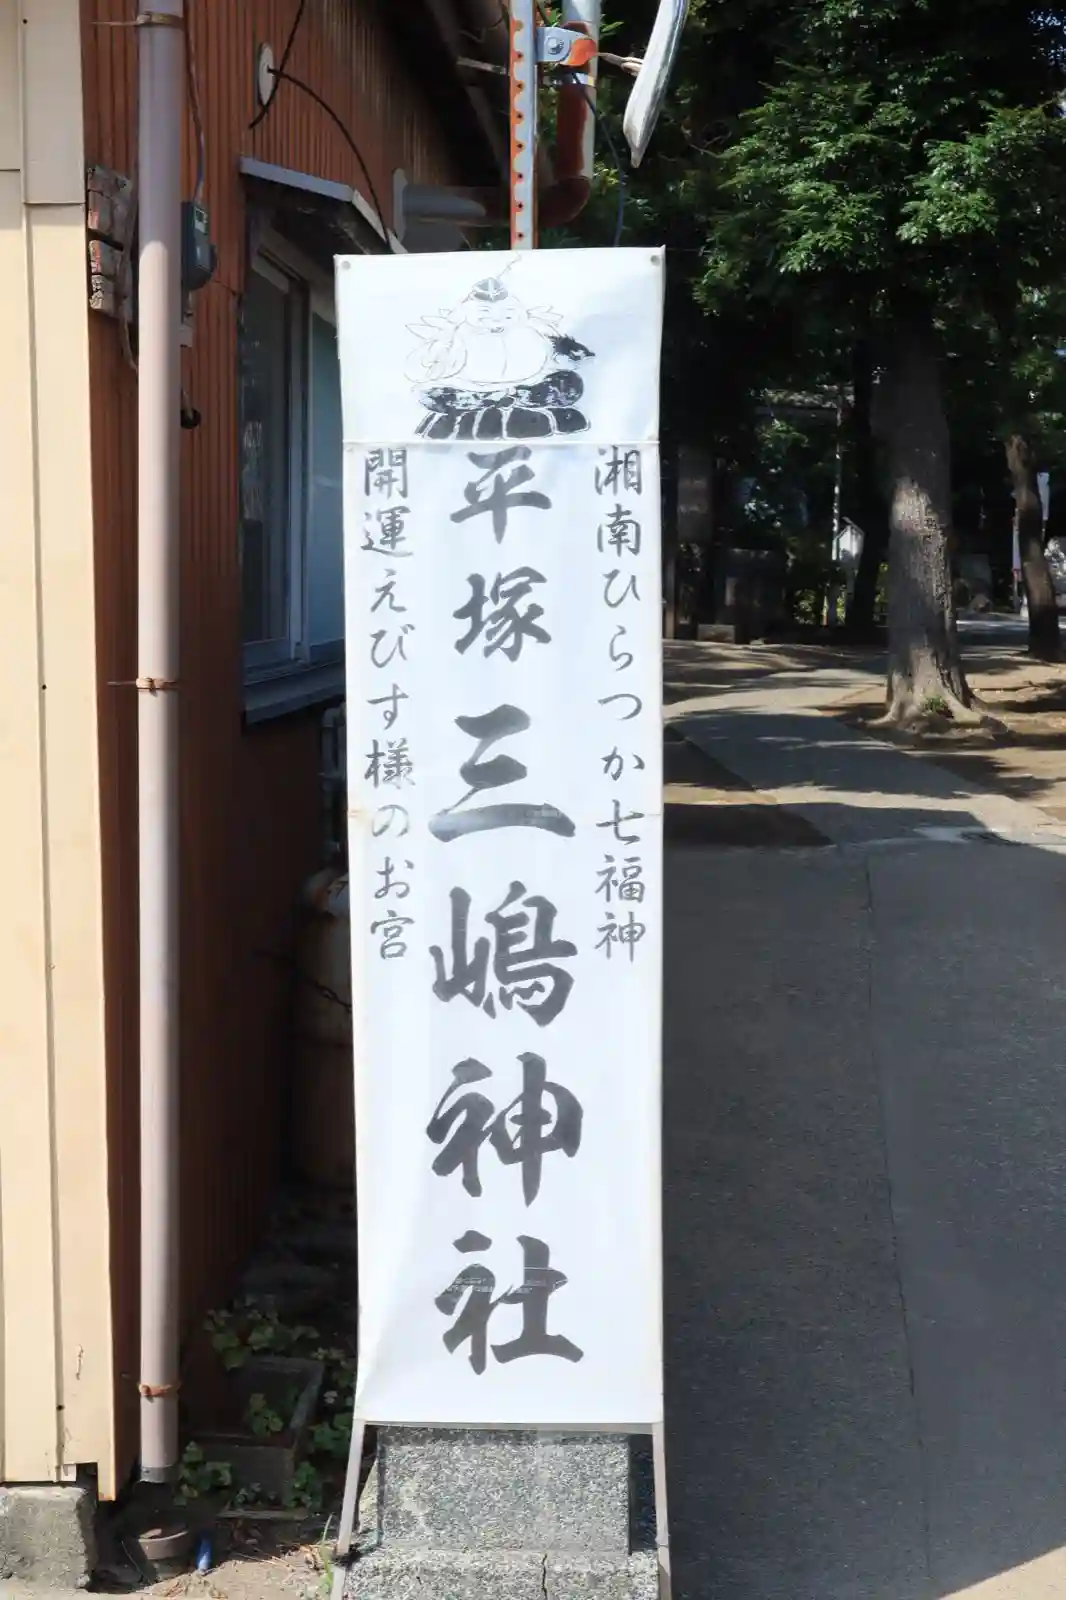 湘南ひらつか七福神
平塚三嶋神社
開運えびす様のお宮